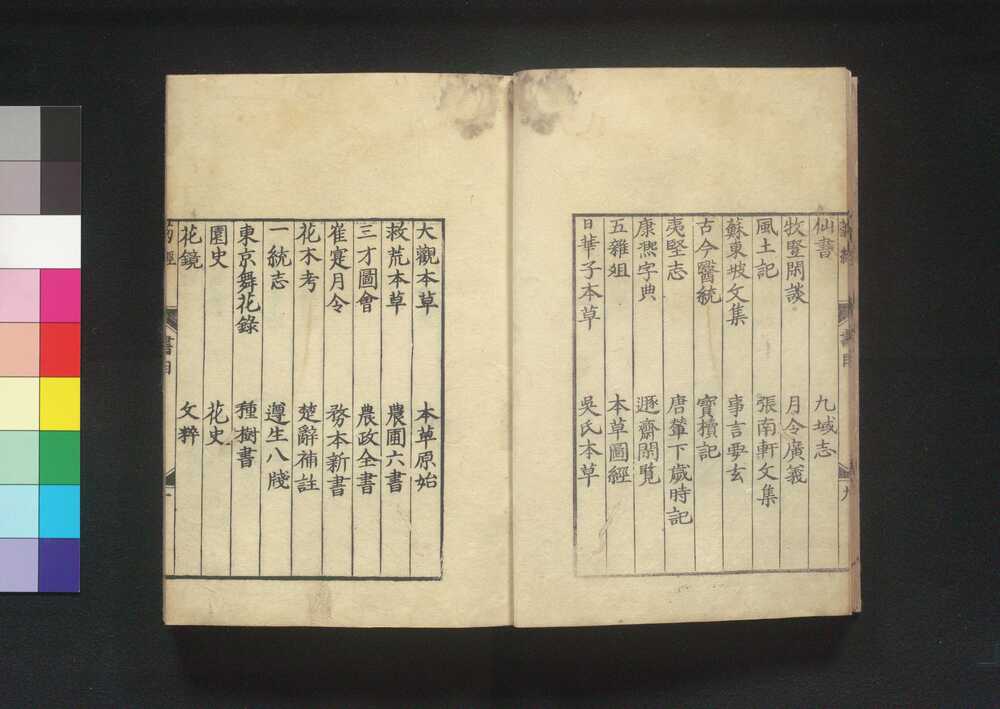 仙書　九域志
牧竪閑談　月令廣義
風土記　張南軒文集
蘇東坡文集　事言要玄
古今醫統　寶櫝記
夷堅志　唐輦下歲時記
康熙字典　遯齋閑覽
五雜俎　本草圖經
日華子本草　吳氏本草
大觀本草　本草原始
救荒本草　農圃六書
三才圖會　農政全書
崔寔月令　務本新書
花木考　楚辭補註
一統志　遵生八牋
東京舞花錄　種樹書
園史　花史
花鏡　文粹
書目